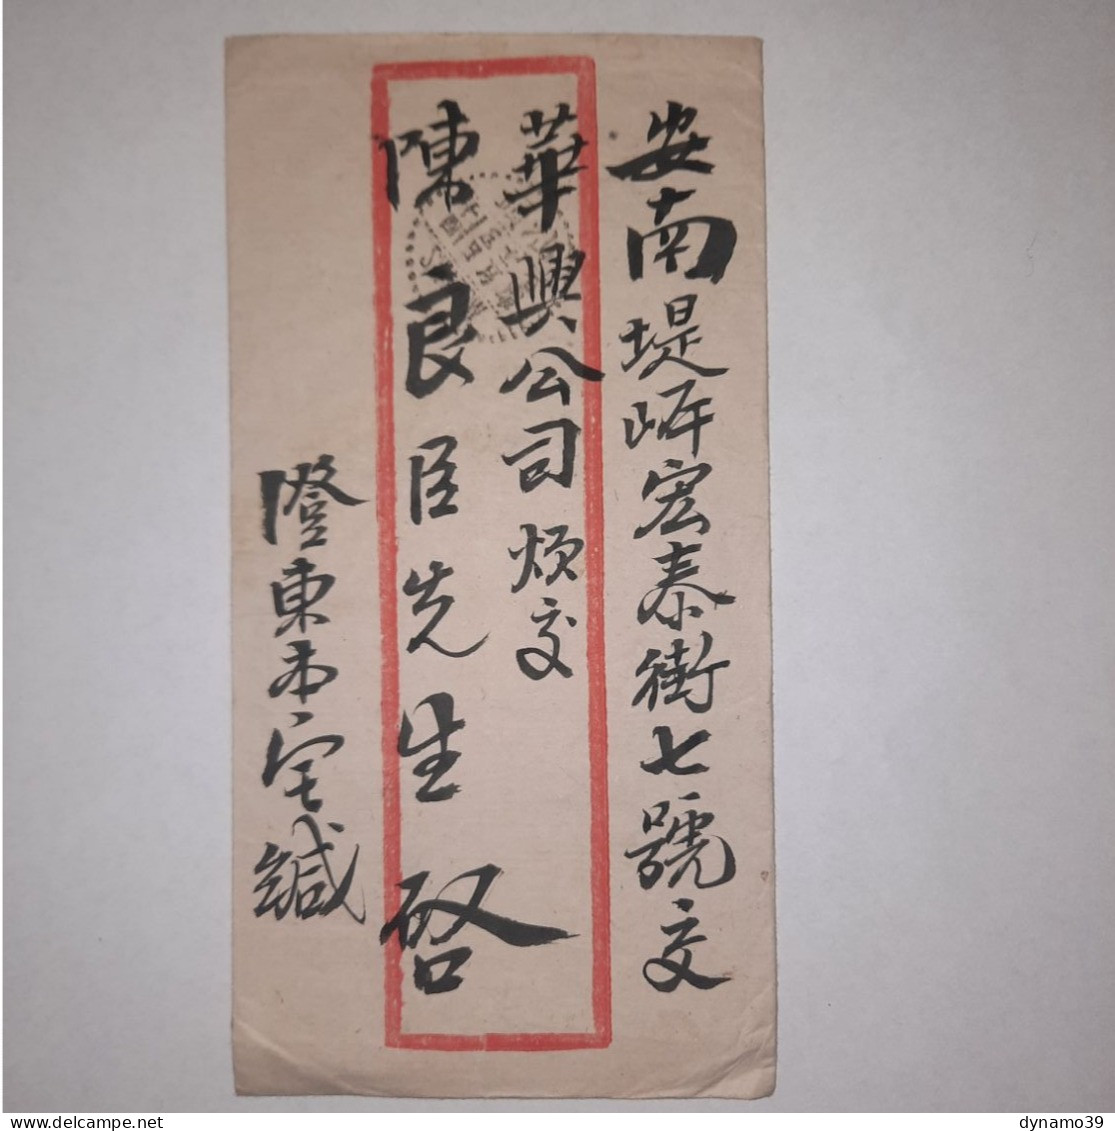 安南堤岸宏泰街七號交
華興公司煩交
陳良臣先生啓
澄東本宅緘
dynamo39